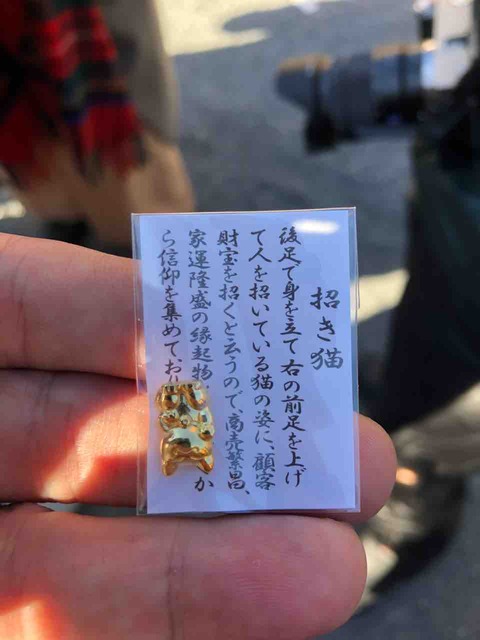 招き猫
後足で身を立て右の前足を上げ
て人を招いている猫の姿に、顧客
財宝を招くと云うので、商売繁昌、
家運隆盛の縁起物 か
ら信仰を集めており